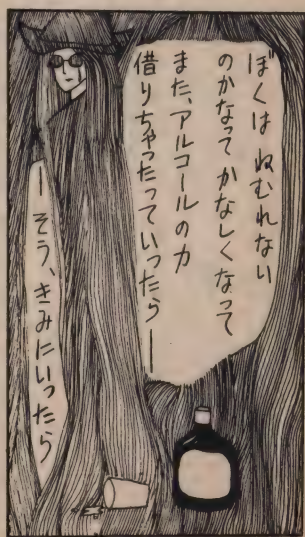 ぼくは ねむれない
のかなって かなしくなって
また、アルコールの力
借りちゃったっていったら──
──そう、きみにいったら